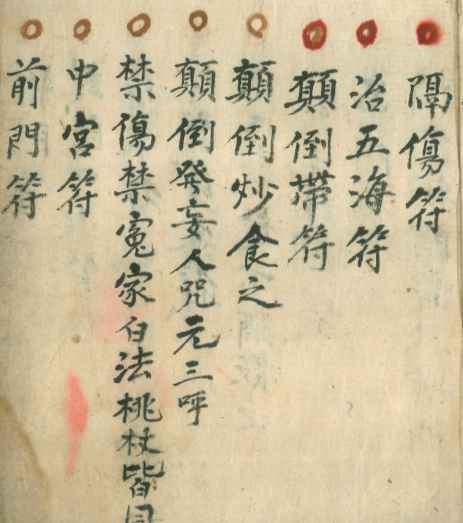 隔傷符
治五海符
顛倒帶符
顛倒炒食之
顛倒發妄人咒元三呼
禁傷禁冤家白法桃杖皆同
中宮符
前門符